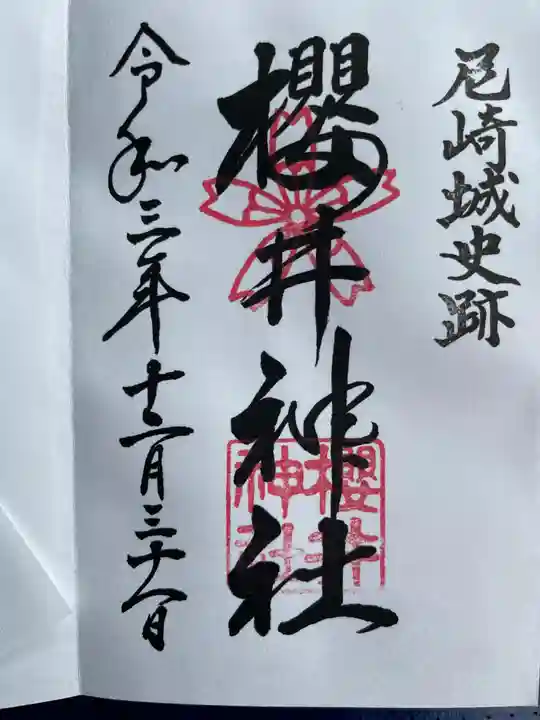 尼崎城史跡
櫻井神社
櫻井
神社
令和三年十二月三十一日